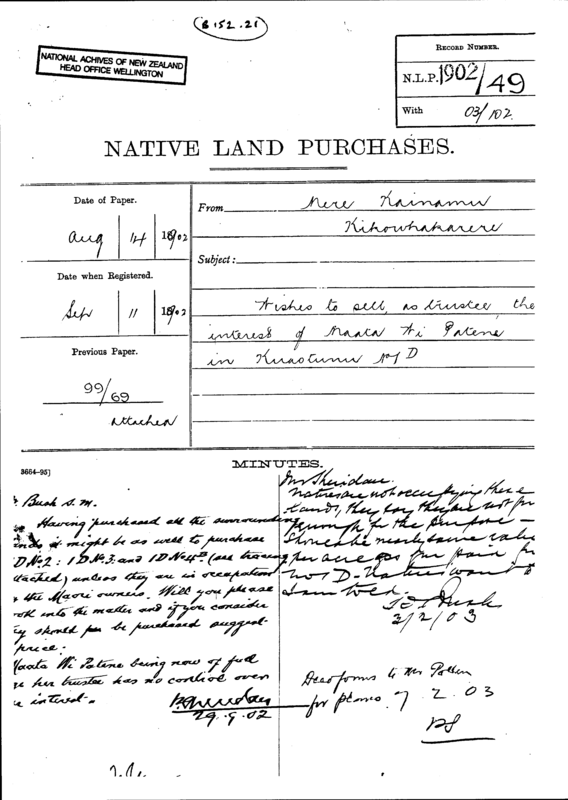 B 152.21
NATIONAL ACHIVES OF NEW ZEALAND
HEAD OFFICE WELLINGTON
RECORD NUMBER.
N.L.P. 1902/49
With 03/102
NATIVE LAND PURCHASES.
Date of Paper.
Aug 14 1902
Date when Registered.
Sep 11 1902
Previous Paper.
99/69
attached
From Mere Kainamu
Subject:
Wishes to sell, as trustee, the
interest of Maata Wi Patene
in Kuaotunu No 1 D
3664-95]
MINUTES.
Bush S.M.
Having purchased all the surrounding
it might be as well to purchase
D No 2: 1D No 3 and 1D No 4B (see tracing
tached) unless they are in occupation
the Maori owners. Will you please
ook into the matter and if you consider
ey should be purchased suggest
price:
aata Wi Patene being now of full
her trustee has no control over
interest.
P Sheridan
29.9.02
Mr Sheridan
Natives are not occupying these
lands, they say they are not
enough for the purpose —
Should be nearly same value
per acre as you paid for
No 1 D. Natives want
I am told.
Bush
3/2/03
Deed forms to Mr
for plans 7.2.03
PS